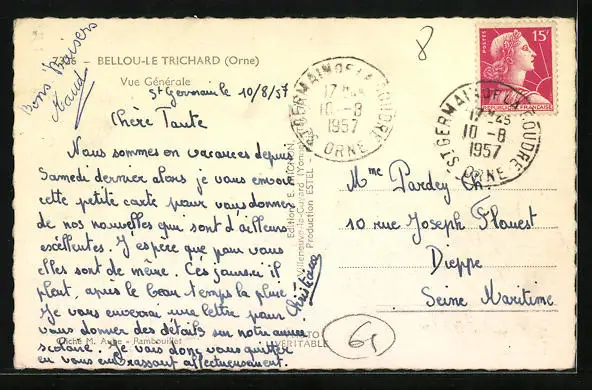 Bons Baisers
Maud
BELLOU-LE TRICHARD (Orne)
Vue Générale
8
St Germain le 10/8/57
Chère Tante
Nous sommes en vacances depuis
Samedi dernier alors je vous envoie
cette petite carte pour vous donner
de nos nouvelles qui sont d'ailleurs
excellentes. J'espère que pour vous
elles sont de même. Ces jours-ci il
pleut, après le beau temps la pluie!
Je vous enverrai une lettre pour
vous donner des détails sur notre année
scolaire. Je vais donc vous quitter
en vous embrassant affectueusement.
Christiane
Cliché M. Aube - Rambouillet
Édition E. MIGNON
Villeneuve-la-Guyard (Yonne)
Production ESTEL
VÉRITABLE
65
POSTES
15F
RÉPUBLIQUE FRANÇAISE
ST GERMAIN DE LA COUDRE
17 H45
10 -8
1957
ORNE
ST GERMAIN DE LA COUDRE
17 H45
10 -8
1957
ORNE
Mme Pardey Ch.
10 rue Joseph Flouest
Dieppe
Seine Maritime